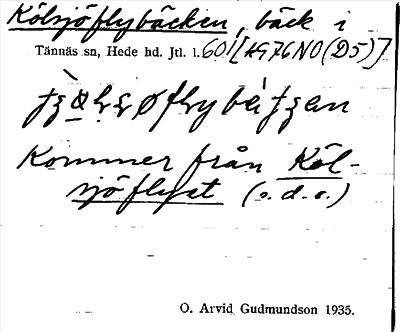 Kölsjöflybäcken, bäck i
Tännäs sn, Hede hd. Jtl. l. 601 [AG76NO(D5)]
Kommer från Köl-
sjöflyet (s.d.o.)
O. Arvid Gudmundson 1935.